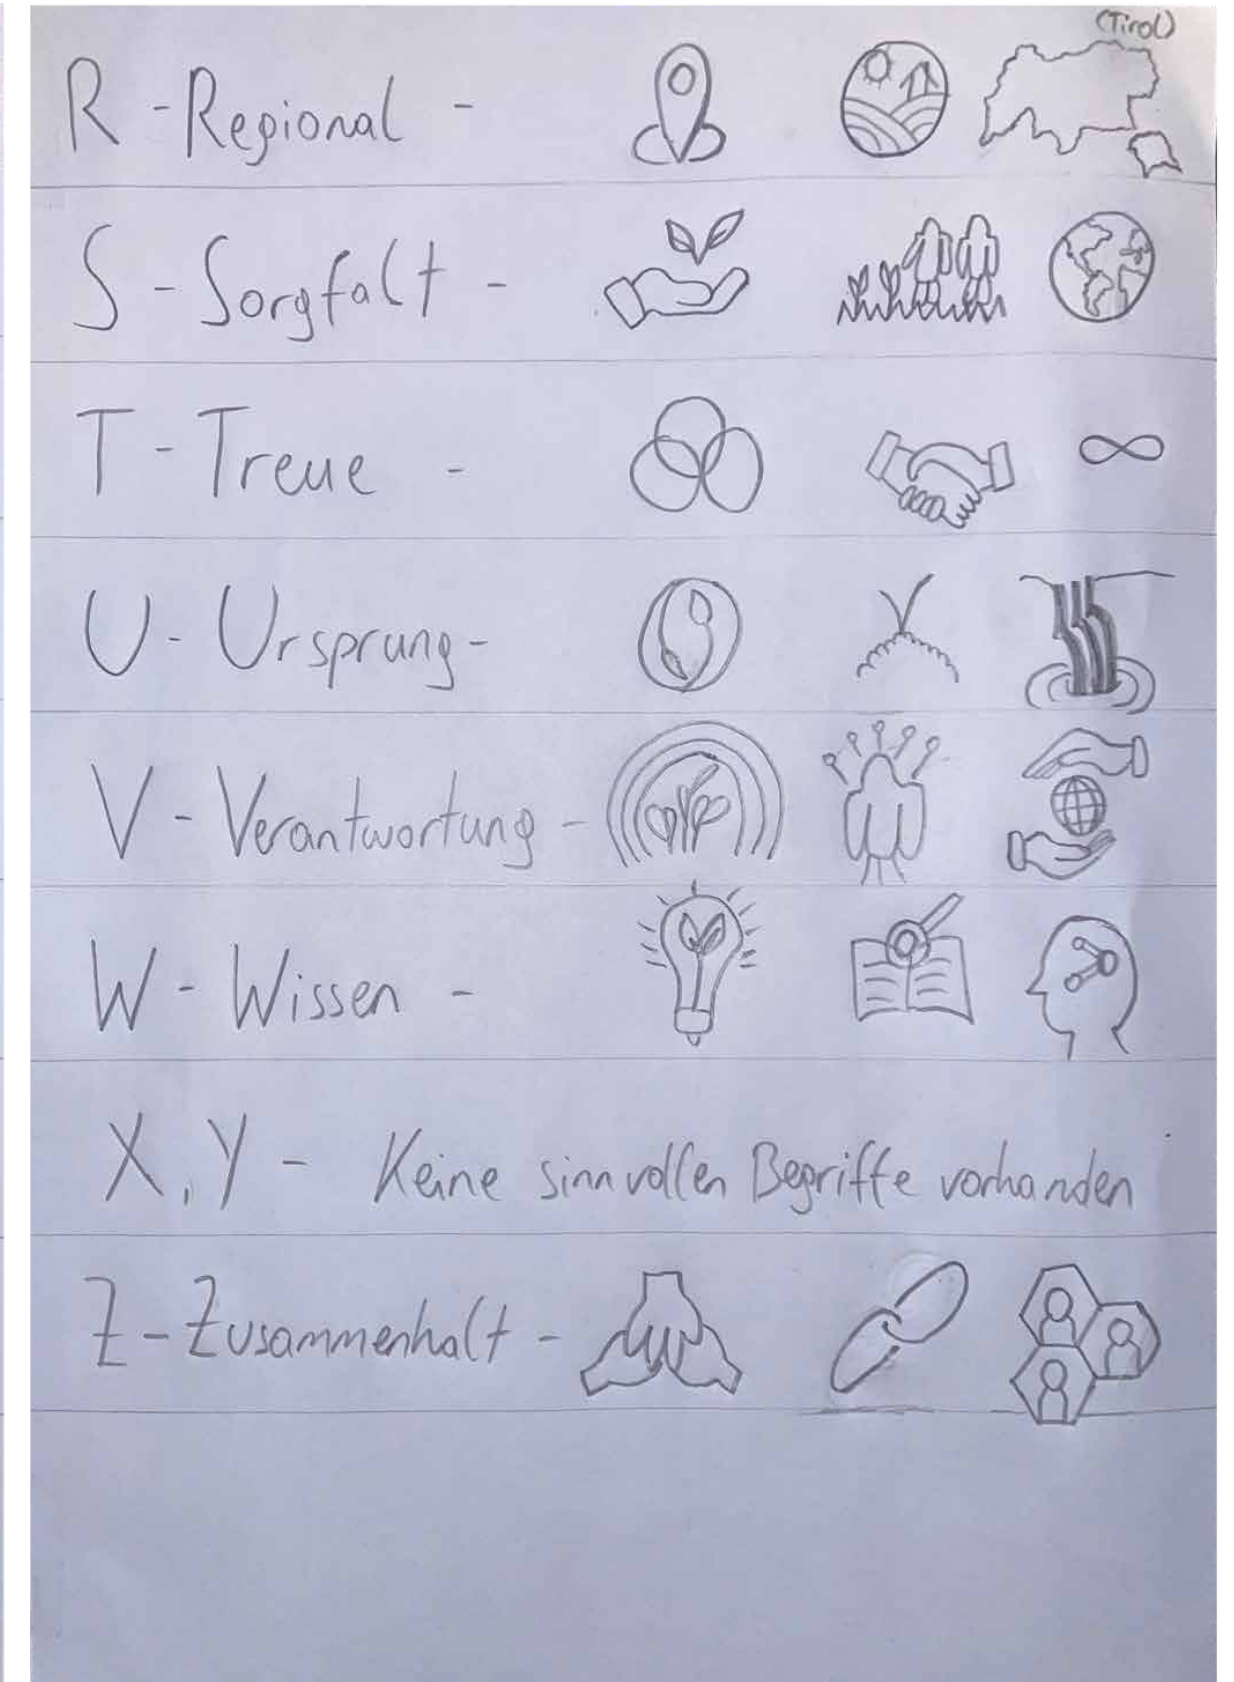 (Tirol)
R - Regional -
S - Sorgfalt -
T - Treue -
U - Ursprung -
V - Verantwortung -
W - Wissen -
X, Y - Keine sinnvollen Begriffe vorhanden
Z - Zusammenhalt -